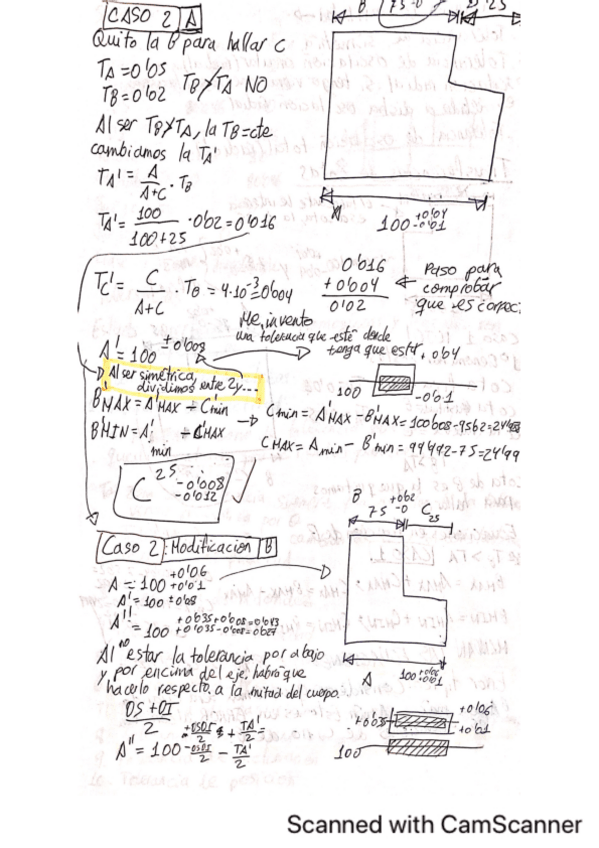 CASO 2 A
B 75 -0 D 25
Quito la B para hallar C
TA = 0'05
TB = 0'02 TB > TA NO
Al ser TB > TA, la TB = cte
cambiamos la TA'
TA' = A / A+C · TB
TA' = 100 / 100+25 · 0'02 = 0'016
100 +0'04 -0'01
TC' = C / A+C · TB = 4·10⁻³ = 0'004
0'016
+ 0'004
0'02
← Paso para
comprobar
que es correc
Me invento
una tolerancia que esté donde
tenga que estar
A' = 100 ±0'008
Al ser simétrica,
dividimos entre 2 y....
100 +0'04 -0'01
BMAX = A'MAX - C'min
B'MIN = A'min - C'MAX
→ Cmin = A'MAX - B'MAX = 100'008 -
CMAX = Amin - B'min = 99'992 - 75 = 24'99
C 25 -0'008 -0'012
B 75 +0'02 -0 C 25
Caso 2: Modificación B
A = 100 +0'06 +0'01
A' = 100 ±0'08
A'' = 100 +0'035+0'008=0'043 +0'035-0'008=0'027
Al no estar la tolerancia por abajo
y por encima del eje, habrá que
hacerlo respecto a la mitad del cuerpo.
A 100 +0'06 +0'01
DS + DI / 2
A'' = 100 +DSDI/2 + TA'/2 = -DSDI/2 - TA'/2
+0'035 +0'06 +0'01
100
Scanned with CamScanner